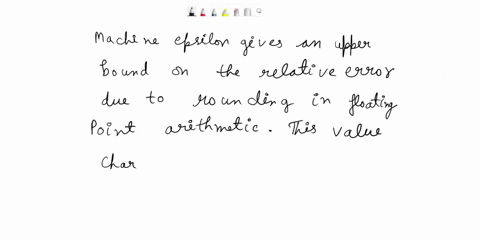 Machine epsilon gives an upper
bound on the relative error
due to rounding in floating
Point arithmetic. This value
Char